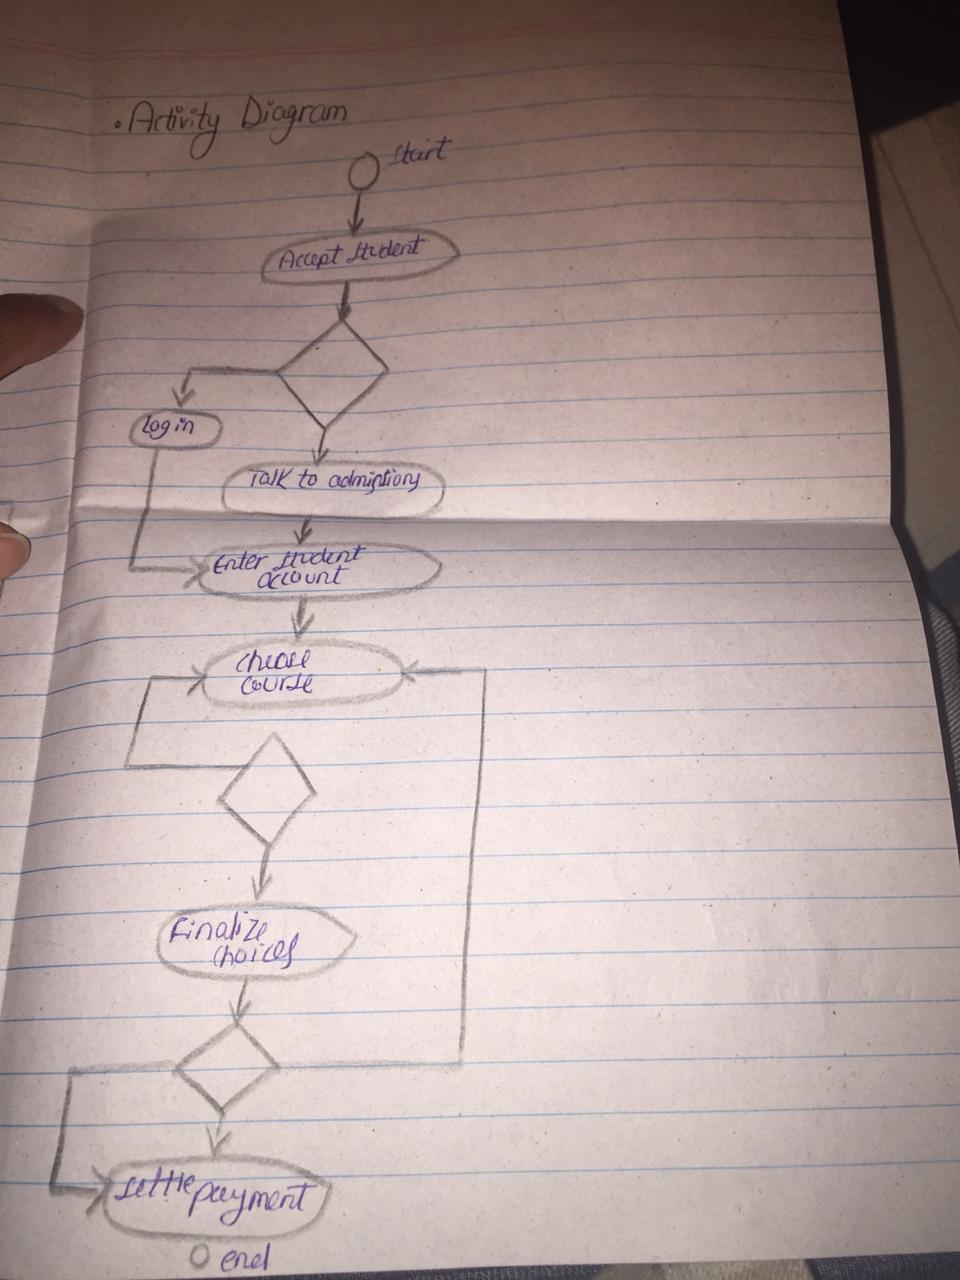 . Activity Diagram
Start
Accept Student
Log in
Talk to admiptions
Enter student
account
chease
course
Finalize
choices
settle payment
end